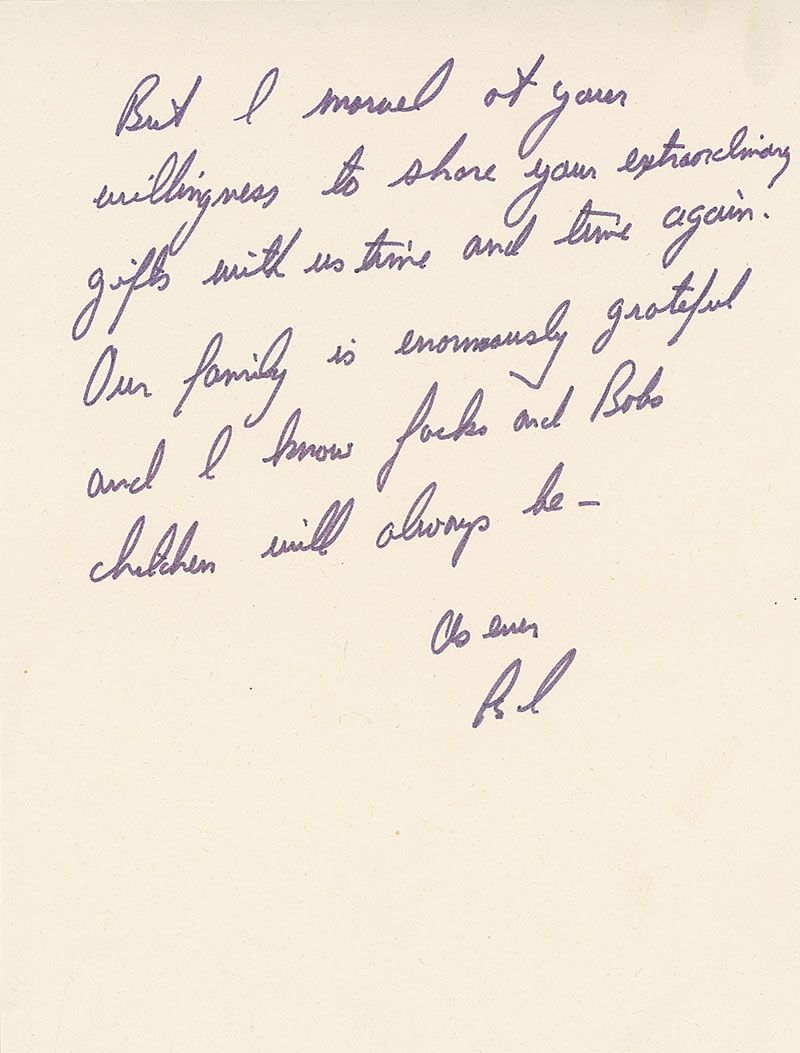 But I marvel at your
willingness to share your extraordinary
gifts with us time and time again.
Our family is enormously grateful
and I know Jacks and Bobs
children will always be –
As ever